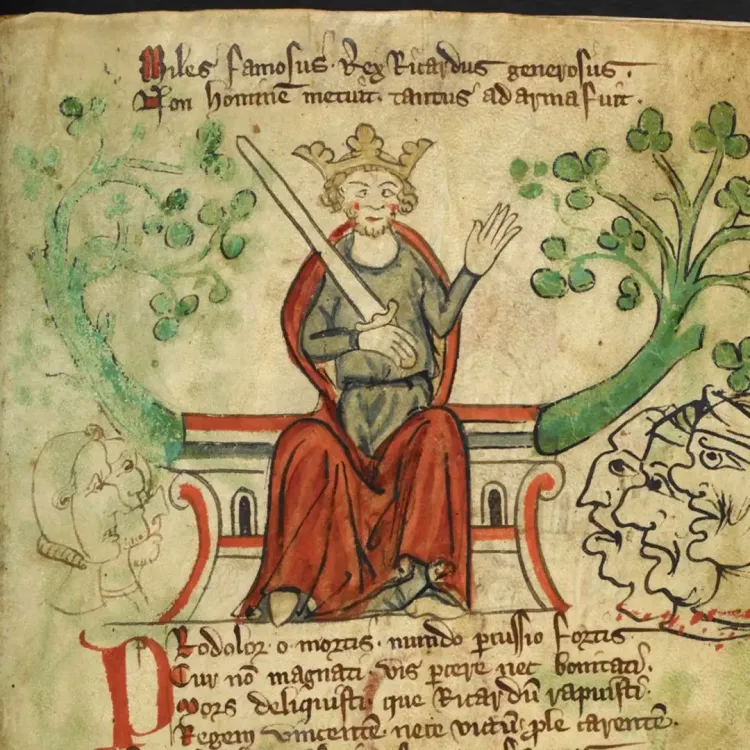 Miles famosus. Rex Ricardus generosus.
Non hominē metuit. tantus ad arma fuit.
PRodolor o mortis. mundo ꝑcussio fortis
Cur nō magnati. vis ꝑcere nec bonitati.
Mors deliquisti. que Ricardū rapuisti.
Regem vincentē. nece victū ꝓle carentē.